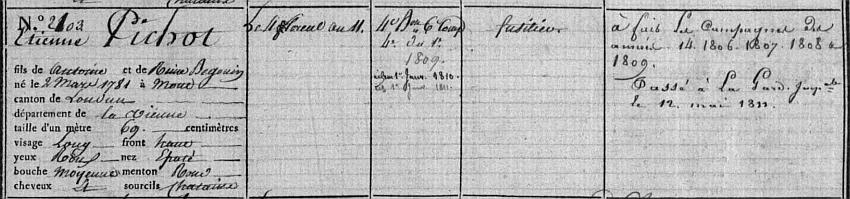 N.° 2103
Etienne Pichot
fils de Antoine et de Reine Begouin
né le 2 Mars 1781 à Mons
canton de Loudun
département de la Vienne
taille d'un mètre 69 centimètres
visage Long front haut
yeux Roux nez Epaté
bouche Moyenne menton Rond
cheveux et sourcils Chatains
Le 4 floreal an 11.
4e Bon 6e Comp
4e du 1er
1809.
1er Janv. 1810
1er Janv. 1811
fusilier
à fait Les Campagnes des
années 14. 1806. 1807. 1808 &
1809.
Passé à La Gard. Impale
le 12. mai 1811.